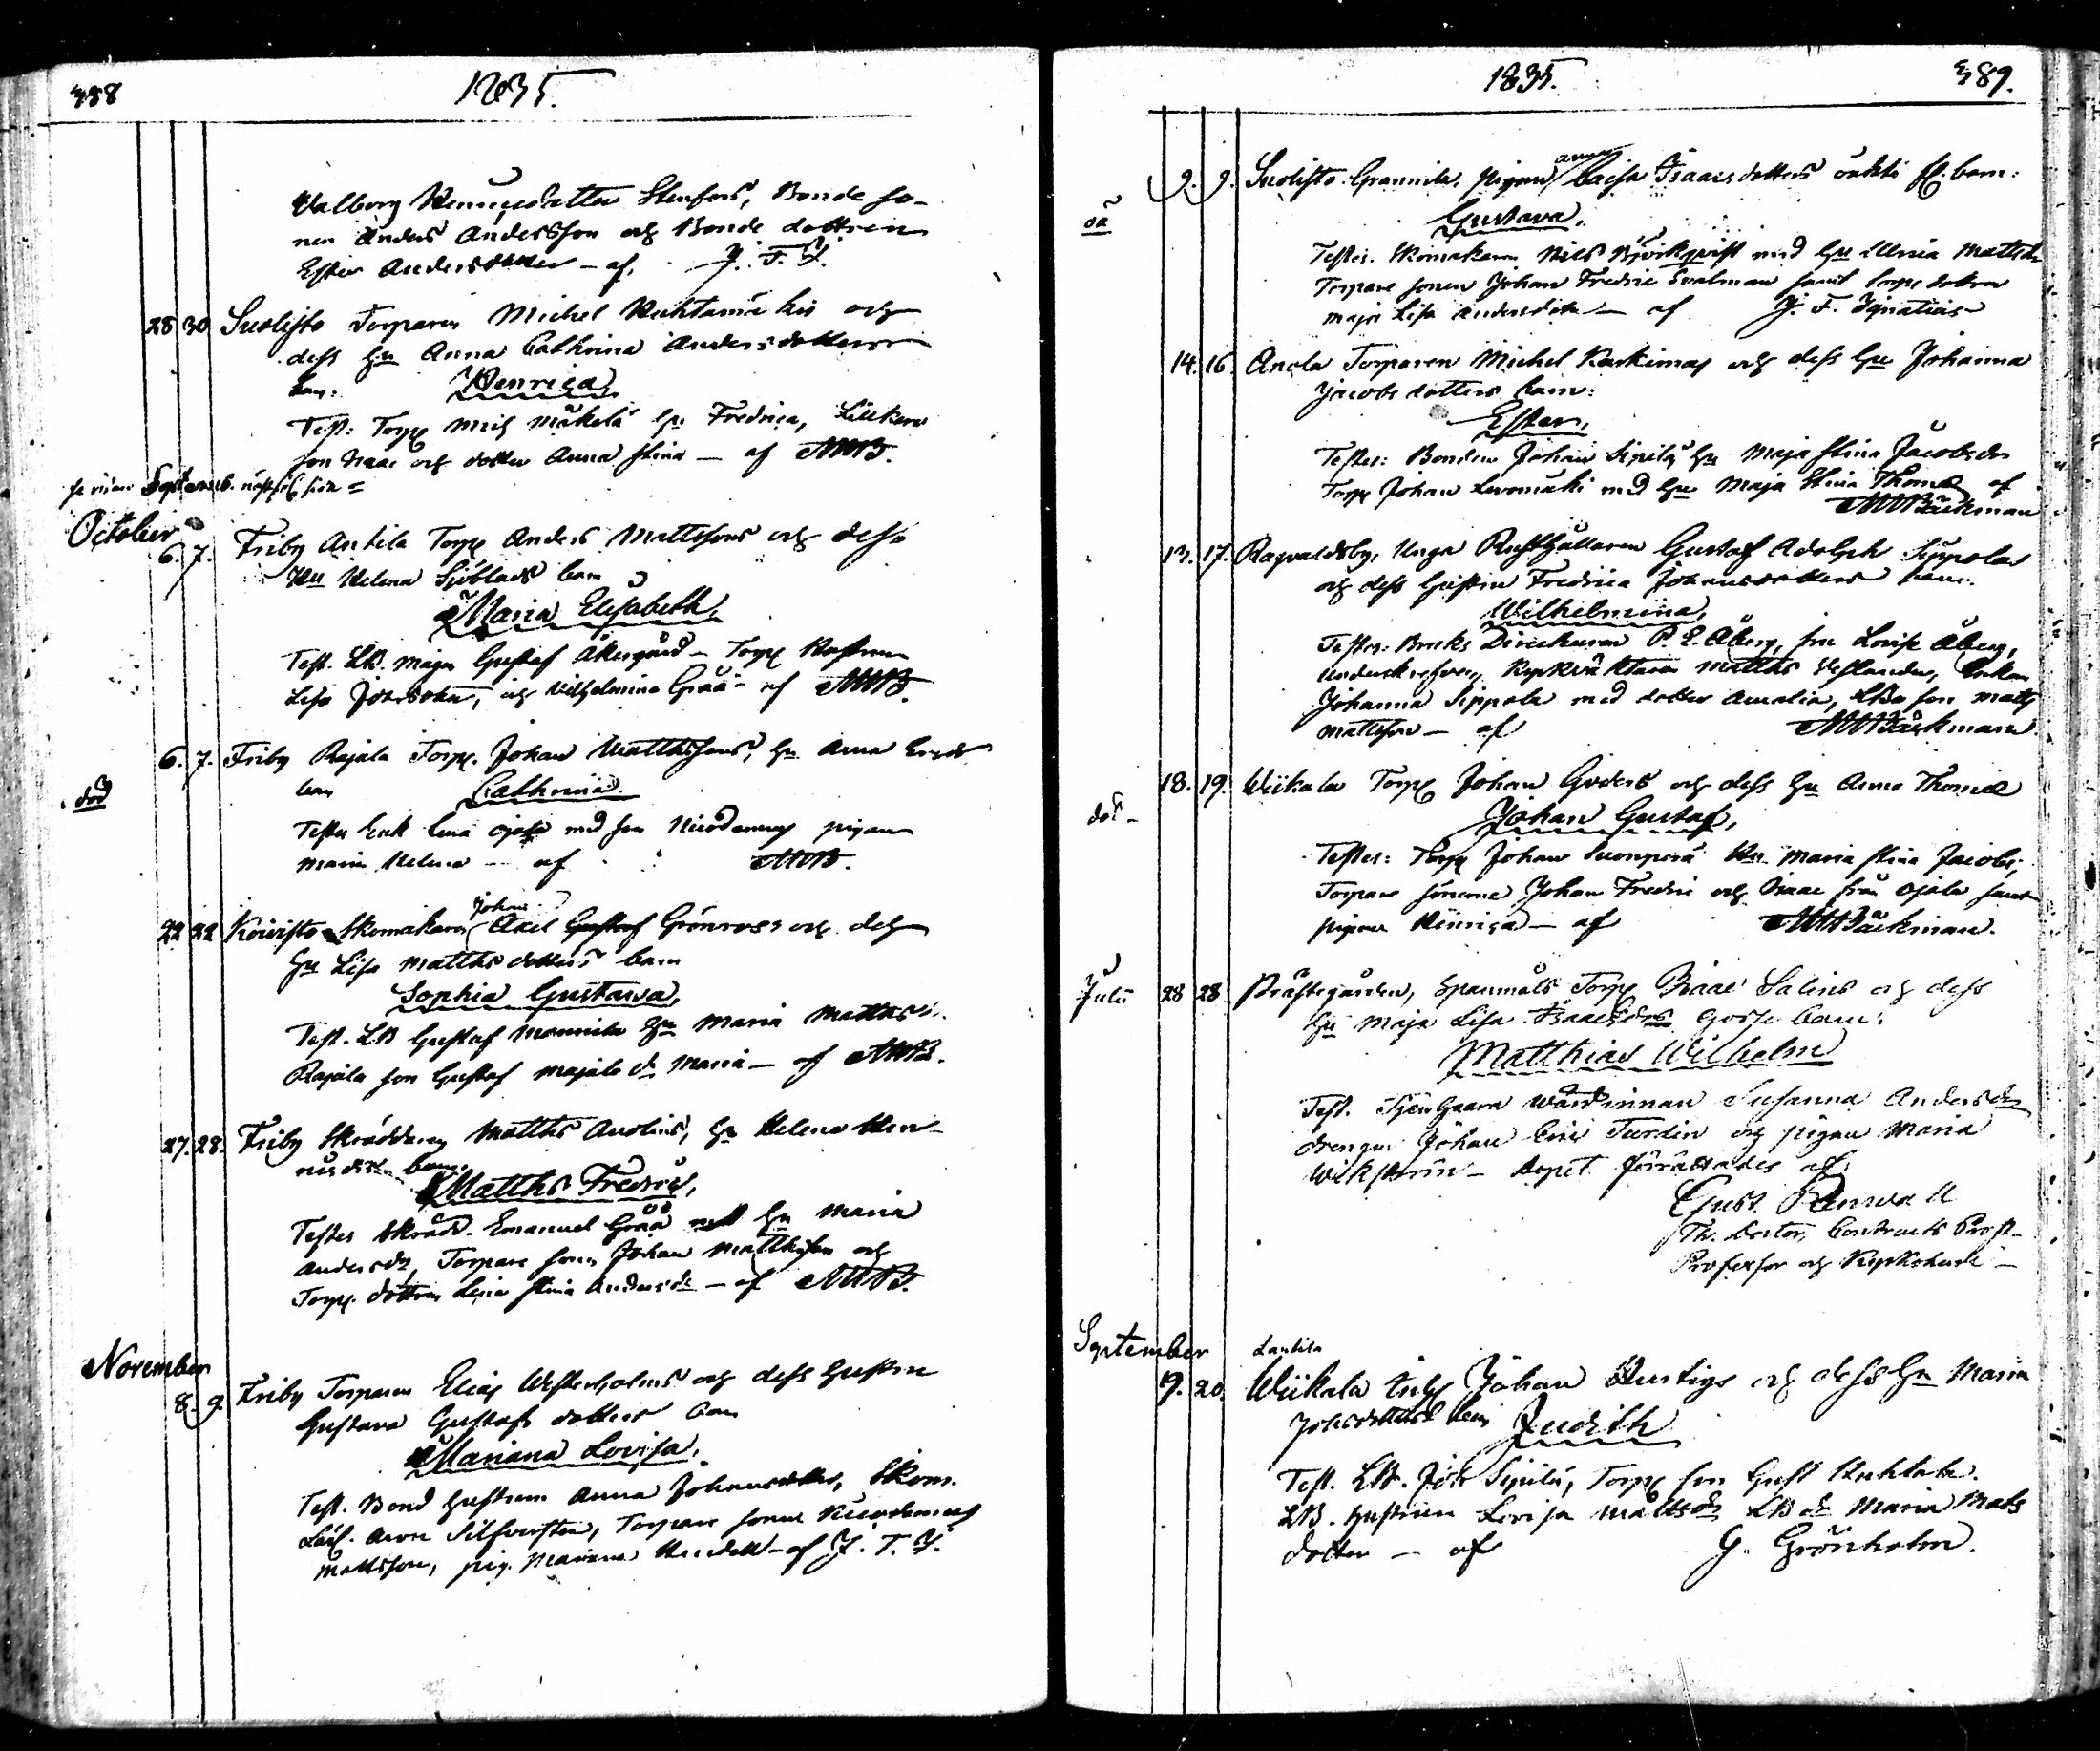 388
1835.
Valborg Henricsdotter Stenfors, Bonde so-
nen Anders Andersson och Bonde dottren
Ester Andersdotter – af. J. F. I.
28 30 Suolisto Torparen Michel Huhtamäkis och
dess Hu Anna Cathrina Andersdotters
barn: Henrica
Test: Torp Mich Mäkelä Hu Fredrica,
son Isaac och dotter Anna Stina – af MWB.
Septemb.
October
6. 7. Friby Antila Torp Anders Mattssons och dess
Hu Helena Sjöblads barn
Maria Elisabeth,
Test. LB. Gustaf Åkergård – Torp
Lisa Johsdotter, och Vilhelmina Grää – af MWB.
6. 7. Friby Rajala Torp. Johan Matthssons, Hu Anna
död
barn Cathrina.
Testes Enk Lena Ojala med son Nicodemus pigan
Maria Helena – af MWB.
22 22 Koivisto Skomakaren Johan Axel Gustaf Grönroos och dess
Hu Lisa Matthsdotters barn
Sophia Gustava,
Test. LB Gustaf Mannila Hu Maria Matths
Rajala son Gustaf Majala dr Maria – af MWB.
27. 28. Friby Skräddaren Matths Avolins, Hu Helena Hen-
barn.
Matths Fredric,
Testes Skrädd. Emanuel Grää med Hu Maria
Andersdr, Torpare sonen Johan Matthsson och
Torp. dottren Lena Stina Andersdr – af MWB.
November
8. 9. Friby Torparen Elias Westerholms och dess Hustru
Gustava Gustafs dotters barn
Mariana Lovisa.
Test. Bond hustrun Anna Johansdotter, Skom.
Silfversten, Torpare sonen Nicodemus
Mattsson, pig. Mariana – af J. F. I.
1835.
389.
9. 9. Suolisto Grannila, pigan Anna Caisa Isaacsdotters oäkta barn:
Gustava,
Testes. Skomakaren Nils Björkqvist med Hu Ulrica Mattsdr
Torpare sonen Johan Fredric Svalman samt Torp dottren
Maja Lisa Andersdotter – af J. F. Ignatius
14. 16. Anola Torparen Michel Karkimas och dess Hu Johanna
Jacobs dotters barn:
Ester,
Testes: Bonden Johan Sipilä Hu Maja Stina Jacobsdr
Torp Johan med Hu Maja Stina Thomæ af
MWBäckman
13. 17. Ragvaldsby, Unga Rusthållaren Gustaf Adolph Sippolas
och dess Hustru Fredrica Johansdotters barn.
Wilhelmina,
Testes: Bruks Directeuren P. E. Åberg, fru Lovisa Åberg,
Matths Vestlander, Enkan
Johanna Sippola med dotter Amalia, LBs son Matts
Mattsson – af MWBäckman
18. 19. Wiikala Torp Johan Gröders och dess Hu Anna Thomæ
död –
Johan Gustaf,
Testes: Torp Johan Suonperä Hu Maria Stina Jacobs,
Torpare sönerne Johan Fredric och Isaac från Ojala samt
pigan Henrica – af MWBäckman.
Julii 28 28 Prästegården, Spanmåls Torp Isaac Salins och dess
Hu Maja Lisa Isaacsdrs Gosse barn:
Matthias Wilhelm
Test. Wärdinnan Susanna Andersdr
drengen Johan Eric Turdin och pigan Maria
Wikström – dopet förrättades af
Gust. Renvall
Th. Doctor, Contracts Prost
Professor och Kyrkoherde –
September
Lautila
19. 20. Wiikala Johan Hurtigs och dess Hu Maria
Johsdotters barn Judith
Test. LB. Joh Sipilä, Torp son Gust Huhtala.
LB. hustrun Lovisa Mattsdr LB dr Maria Mats
dotter – af G. Grönholm.